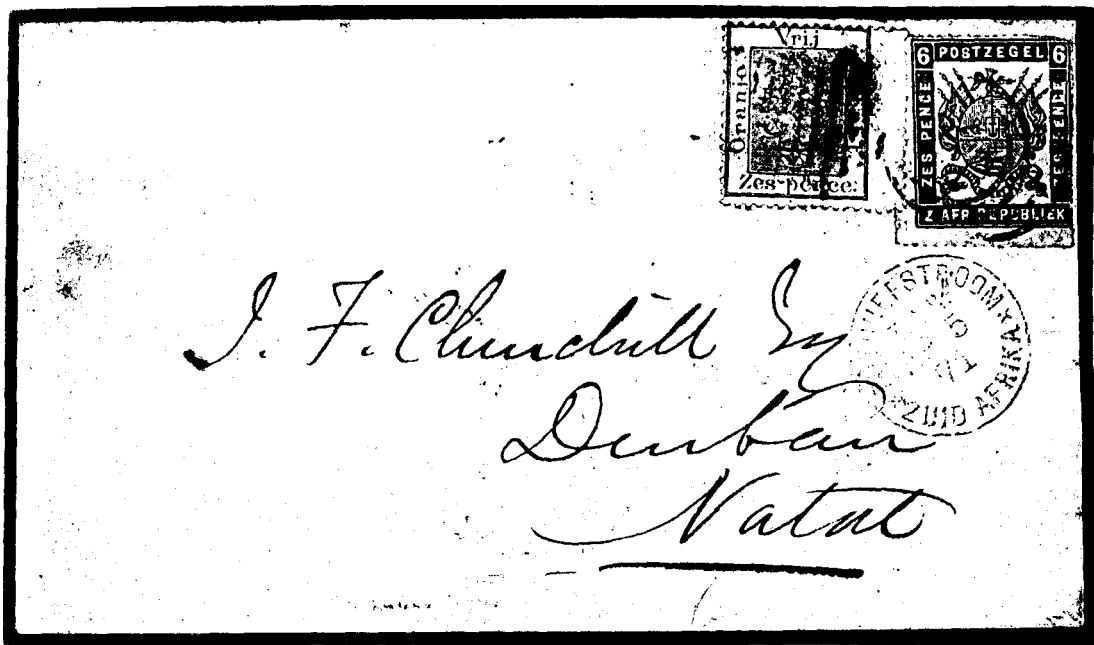 Vrij
Oranje
Zes pence.
6 POSTZEGEL 6
ZES PENCE
ZES PENCE
Z AFR REPUBLIEK
ZUID AFRIKA
J. F. Churchill Esq
Durban
Natal